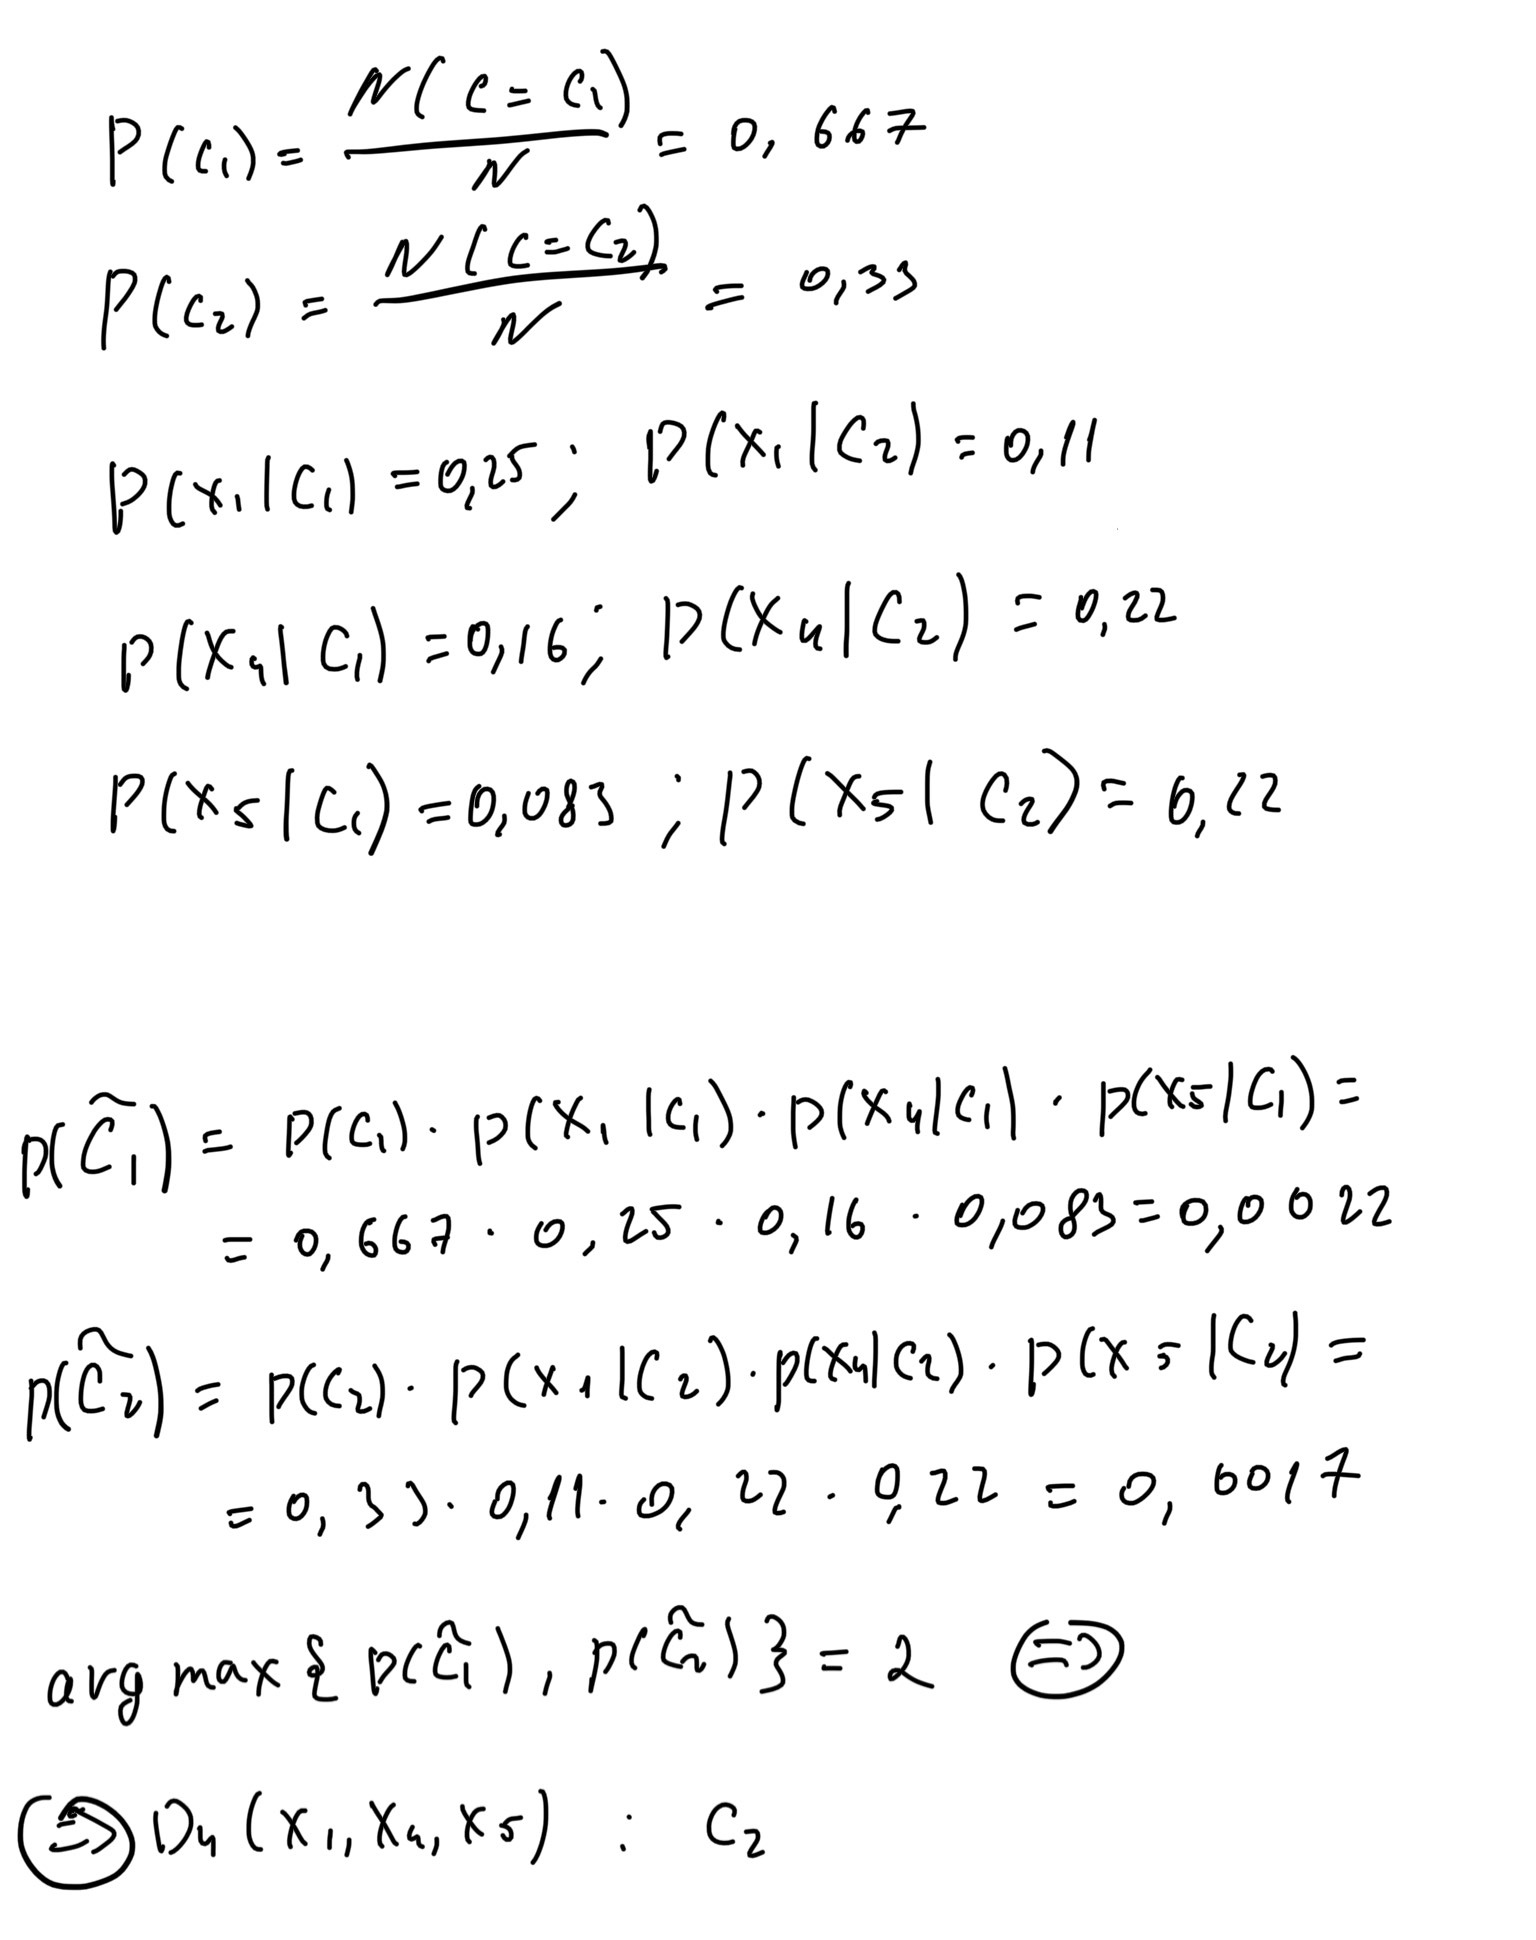 P(C₁) = N(C = C₁) / N = 0,667
P(C₂) = N(C = C₂) / N = 0,33
P(X₁|C₁) = 0,25 ; P(X₁|C₂) = 0,11
P(X₄|C₁) = 0,16 ; P(X₄|C₂) = 0,22
P(X₅|C₁) = 0,083 ; P(X₅|C₂) = 0,22
p(C̃₁) = P(C₁) · p(X₁|C₁) · p(X₄|C₁) · p(X₅|C₁) =
= 0,667 · 0,25 · 0,16 · 0,083 = 0,0022
p(C̃₂) = p(C₂) · p(X₁|C₂) · p(X₄|C₂) · p(X₅|C₂) =
= 0,33 · 0,11 · 0,22 · 0,22 = 0,0017
arg max { p(C̃₁), p(C̃₂) } = 2 ⇒
⇒ D₄ (X₁, X₄, X₅) : C₂